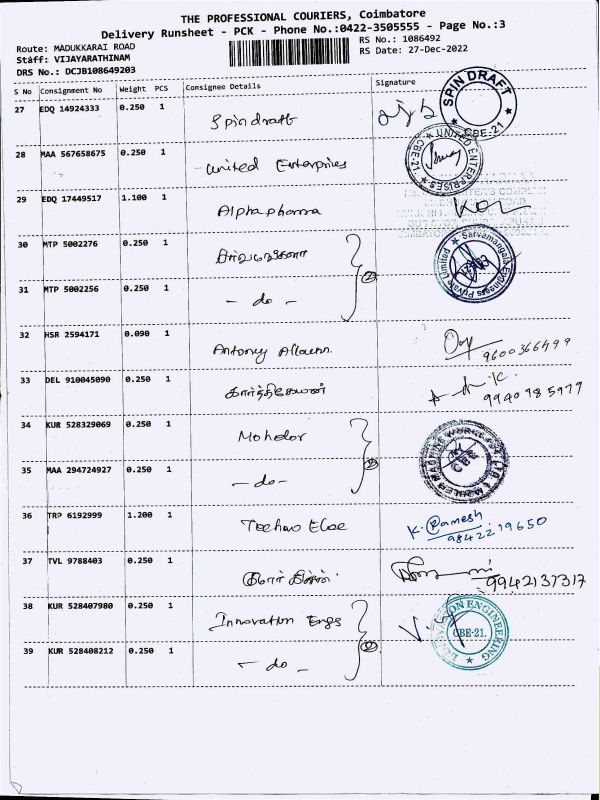 THE PROFESSIONAL COURIERS, Coimbatore
Delivery Runsheet - PCK - Phone No.:0422-3505555 - Page No.:3
Route: MADUKKARAI ROAD
RS No.: 1086492
Staff: VIJAYARATHINAM
RS Date: 27-Dec-2022
DRS No.: DCJB108649203
S No Consignment No Weight PCS Consignee Details Signature
27 EDQ 14924333 0.250 1 Spindraft
SPIN DRAFT CBE-21
28 MAA 567658675 0.250 1 United Enterprises
UNITED ENTERPRISES CBE-21
29 EDQ 17449517 1.100 1 Alphapharma
30 MTP 5002276 0.250 1
Sarvamangala Engineers Private Limited
31 MTP 5002256 0.250 1 - do - 2
32 HSR 2594171 0.090 1 Antony
9600366499
33 DEL 910045090 0.250 1 கார்த்திகேயன்
9940985979
34 KUR 528329069 0.250 1
35 MAA 294724927 0.250 1 - do - 2
36 TRP 6192999 1.200 1 Techno
K. Ramesh
9842219650
37 TVL 9788403 0.250 1
9942137317
38 KUR 528407980 0.250 1 Innovation Engg
INNOVATION ENGINEERING CBE-21.
39 KUR 528408212 0.250 1 - do - 2